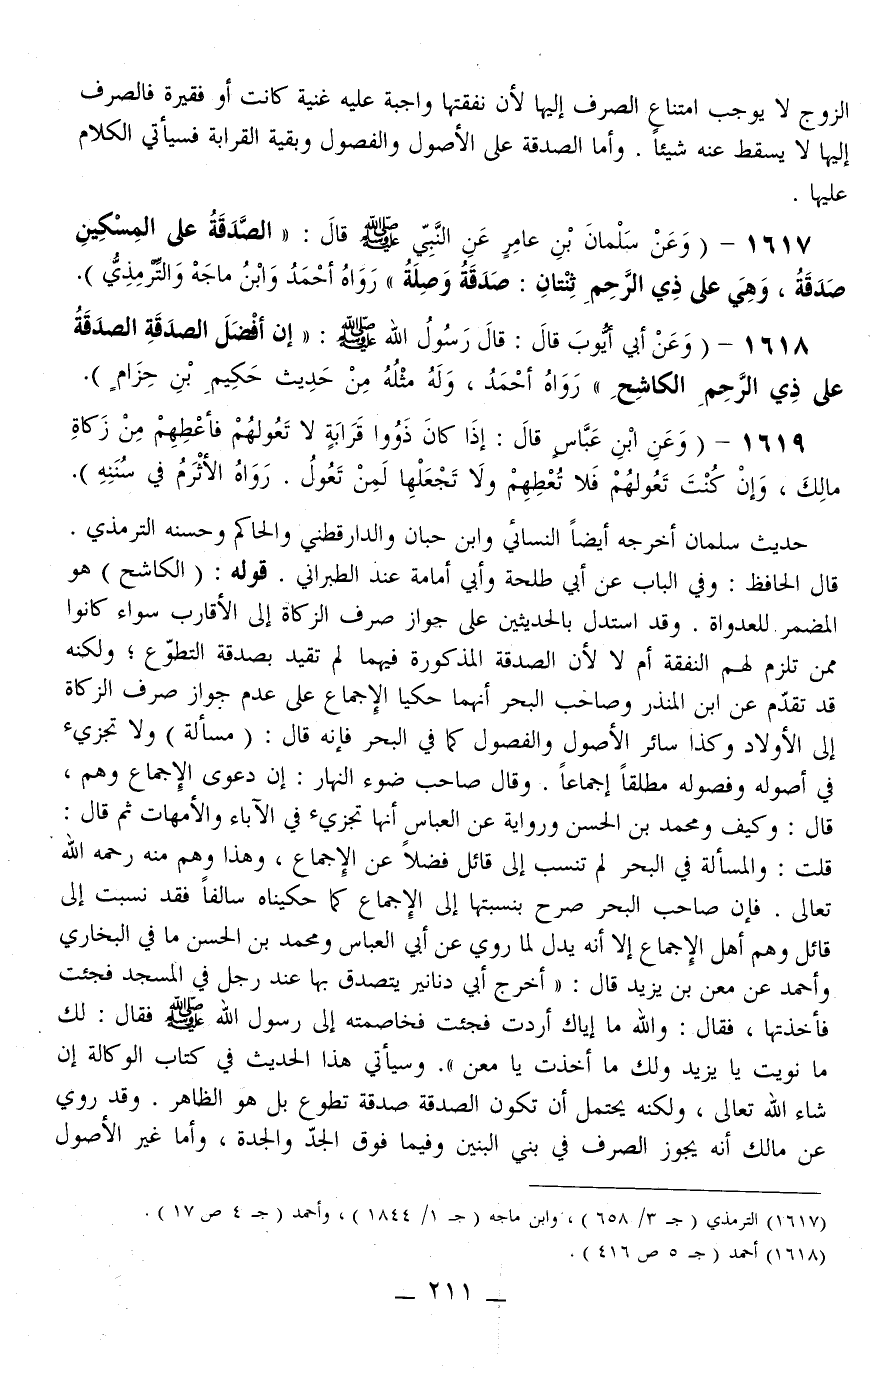 الزوج لا يوجب امتناع الصرف إليها لأن نفقتها واجبة عليه غنية كانت أو فقيرة فالصرف
إليها لا يسقط عنه شيئاً . وأما الصدقة على الأصول والفصول وبقية القرابة فسيأتي الكلام
عليها .
١٦١٧ – ( وَعَنْ سَلْمانَ بْنِ عامِرٍ عَنِ النَّبِيِّ ﷺ قالَ : « الصَّدَقَةُ على المِسْكِينِ
صَدَقَةُ ، وَهِيَ على ذِي الرَّحِمِ ثِنْتانِ : صَدَقَةٌ وَصِلَةُ » رَوَاهُ أَحْمَدُ وَابْنُ ماجَهْ وَالتِّرْمِذِيُّ ).
١٦١٨ – ( وَعَنْ أبي أَيُّوبَ قالَ : قالَ رَسُولُ الله ﷺ : « إن أَفْضَلَ الصدَقَةِ الصدَقَةُ
على ذِي الرَّحِمِ الكاشِحِ » رَوَاهُ أَحْمَدُ ، وَلَهُ مثْلُهُ مِنْ حَدِيث حَكِيمِ بْنِ حِزَامٍ ).
١٦١٩ – ( وَعَنِ ابْنِ عَبَّاسٍ قالَ : إذَا كانَ ذَوُوا قَرَابَةٍ لا تَعُولهُمْ فأَعْطِهِمْ مِنْ زَكاةِ
مالِكَ ، وَإنْ كُنْتَ تَعُولهُمْ فَلا تُعْطِهِمْ ولَا تَجْعَلْها لَمِنْ تَعُولُ . رَوَاهُ الأَثْرَمُ في سُنَنِهِ ).
حديث سلمان أخرجه أيضاً النسائي وابن حبان والدارقطني والحاكم وحسنه الترمذي .
قال الحافظ : وفي الباب عن أبي طلحة وأبي أمامة عند الطبراني . قوله : ( الكاشح ) هو
المضمر للعدواة . وقد استدل بالحديثين على جواز صرف الزكاة إلى الأقارب سواء كانوا
ممن تلزم لهم النفقة أم لا لأن الصدقة المذكورة فيهما لم تقيد بصدقة التطوّع ؛ ولكنه
قد تقدّم عن ابن المنذر وصاحب البحر أنهما حكيا الإجماع على عدم جواز صرف الزكاة
إلى الأولاد وكذا سائر الأصول والفصول كما في البحر فإنه قال : ( مسألة ) ولا تجزيء
في أصوله وفصوله مطلقاً إجماعاً . وقال صاحب ضوء النهار : إن دعوى الإجماع وهم ،
قال : وكيف ومحمد بن الحسن ورواية عن العباس أنها تجزيء في الآباء والأمهات ثم قال :
قلت : والمسألة في البحر لم تنسب إلى قائل فضلاً عن الإجماع ، وهذا وهم منه رحمه الله
تعالى . فإن صاحب البحر صرح بنسبتها إلى الإجماع كما حكيناه سالفاً فقد نسبت إلى
قائل وهم أهل الإجماع إلا أنه يدل لما روي عن أبي العباس ومحمد بن الحسن ما في البخاري
وأحمد عن معن بن يزيد قال : « أخرج أبي دنانير يتصدق بها عند رجل في المسجد فجئت
فأخذتها ، فقال : والله ما إياك أردت فجئت فخاصمته إلى رسول الله ﷺ فقال : لك
ما نويت يا يزيد ولك ما أخذت يا معن ». وسيأتي هذا الحديث في كتاب الوكالة إن
شاء الله تعالى ، ولكنه يحتمل أن تكون الصدقة صدقة تطوع بل هو الظاهر . وقد روي
عن مالك أنه يجوز الصرف في بني البنين وفيما فوق الجدّ والجدة ، وأما غير الأصول
(١٦١٧) الترمذي ( جـ ٣/ ٦٥٨ ) ، وابن ماجه ( جـ ١/ ١٨٤٤ ) ، وأحمد ( جـ ٤ ص ١٧ ) .
(١٦١٨) أحمد ( جـ ٥ ص ٤١٦ ) .
ــ ٢١١ ــ